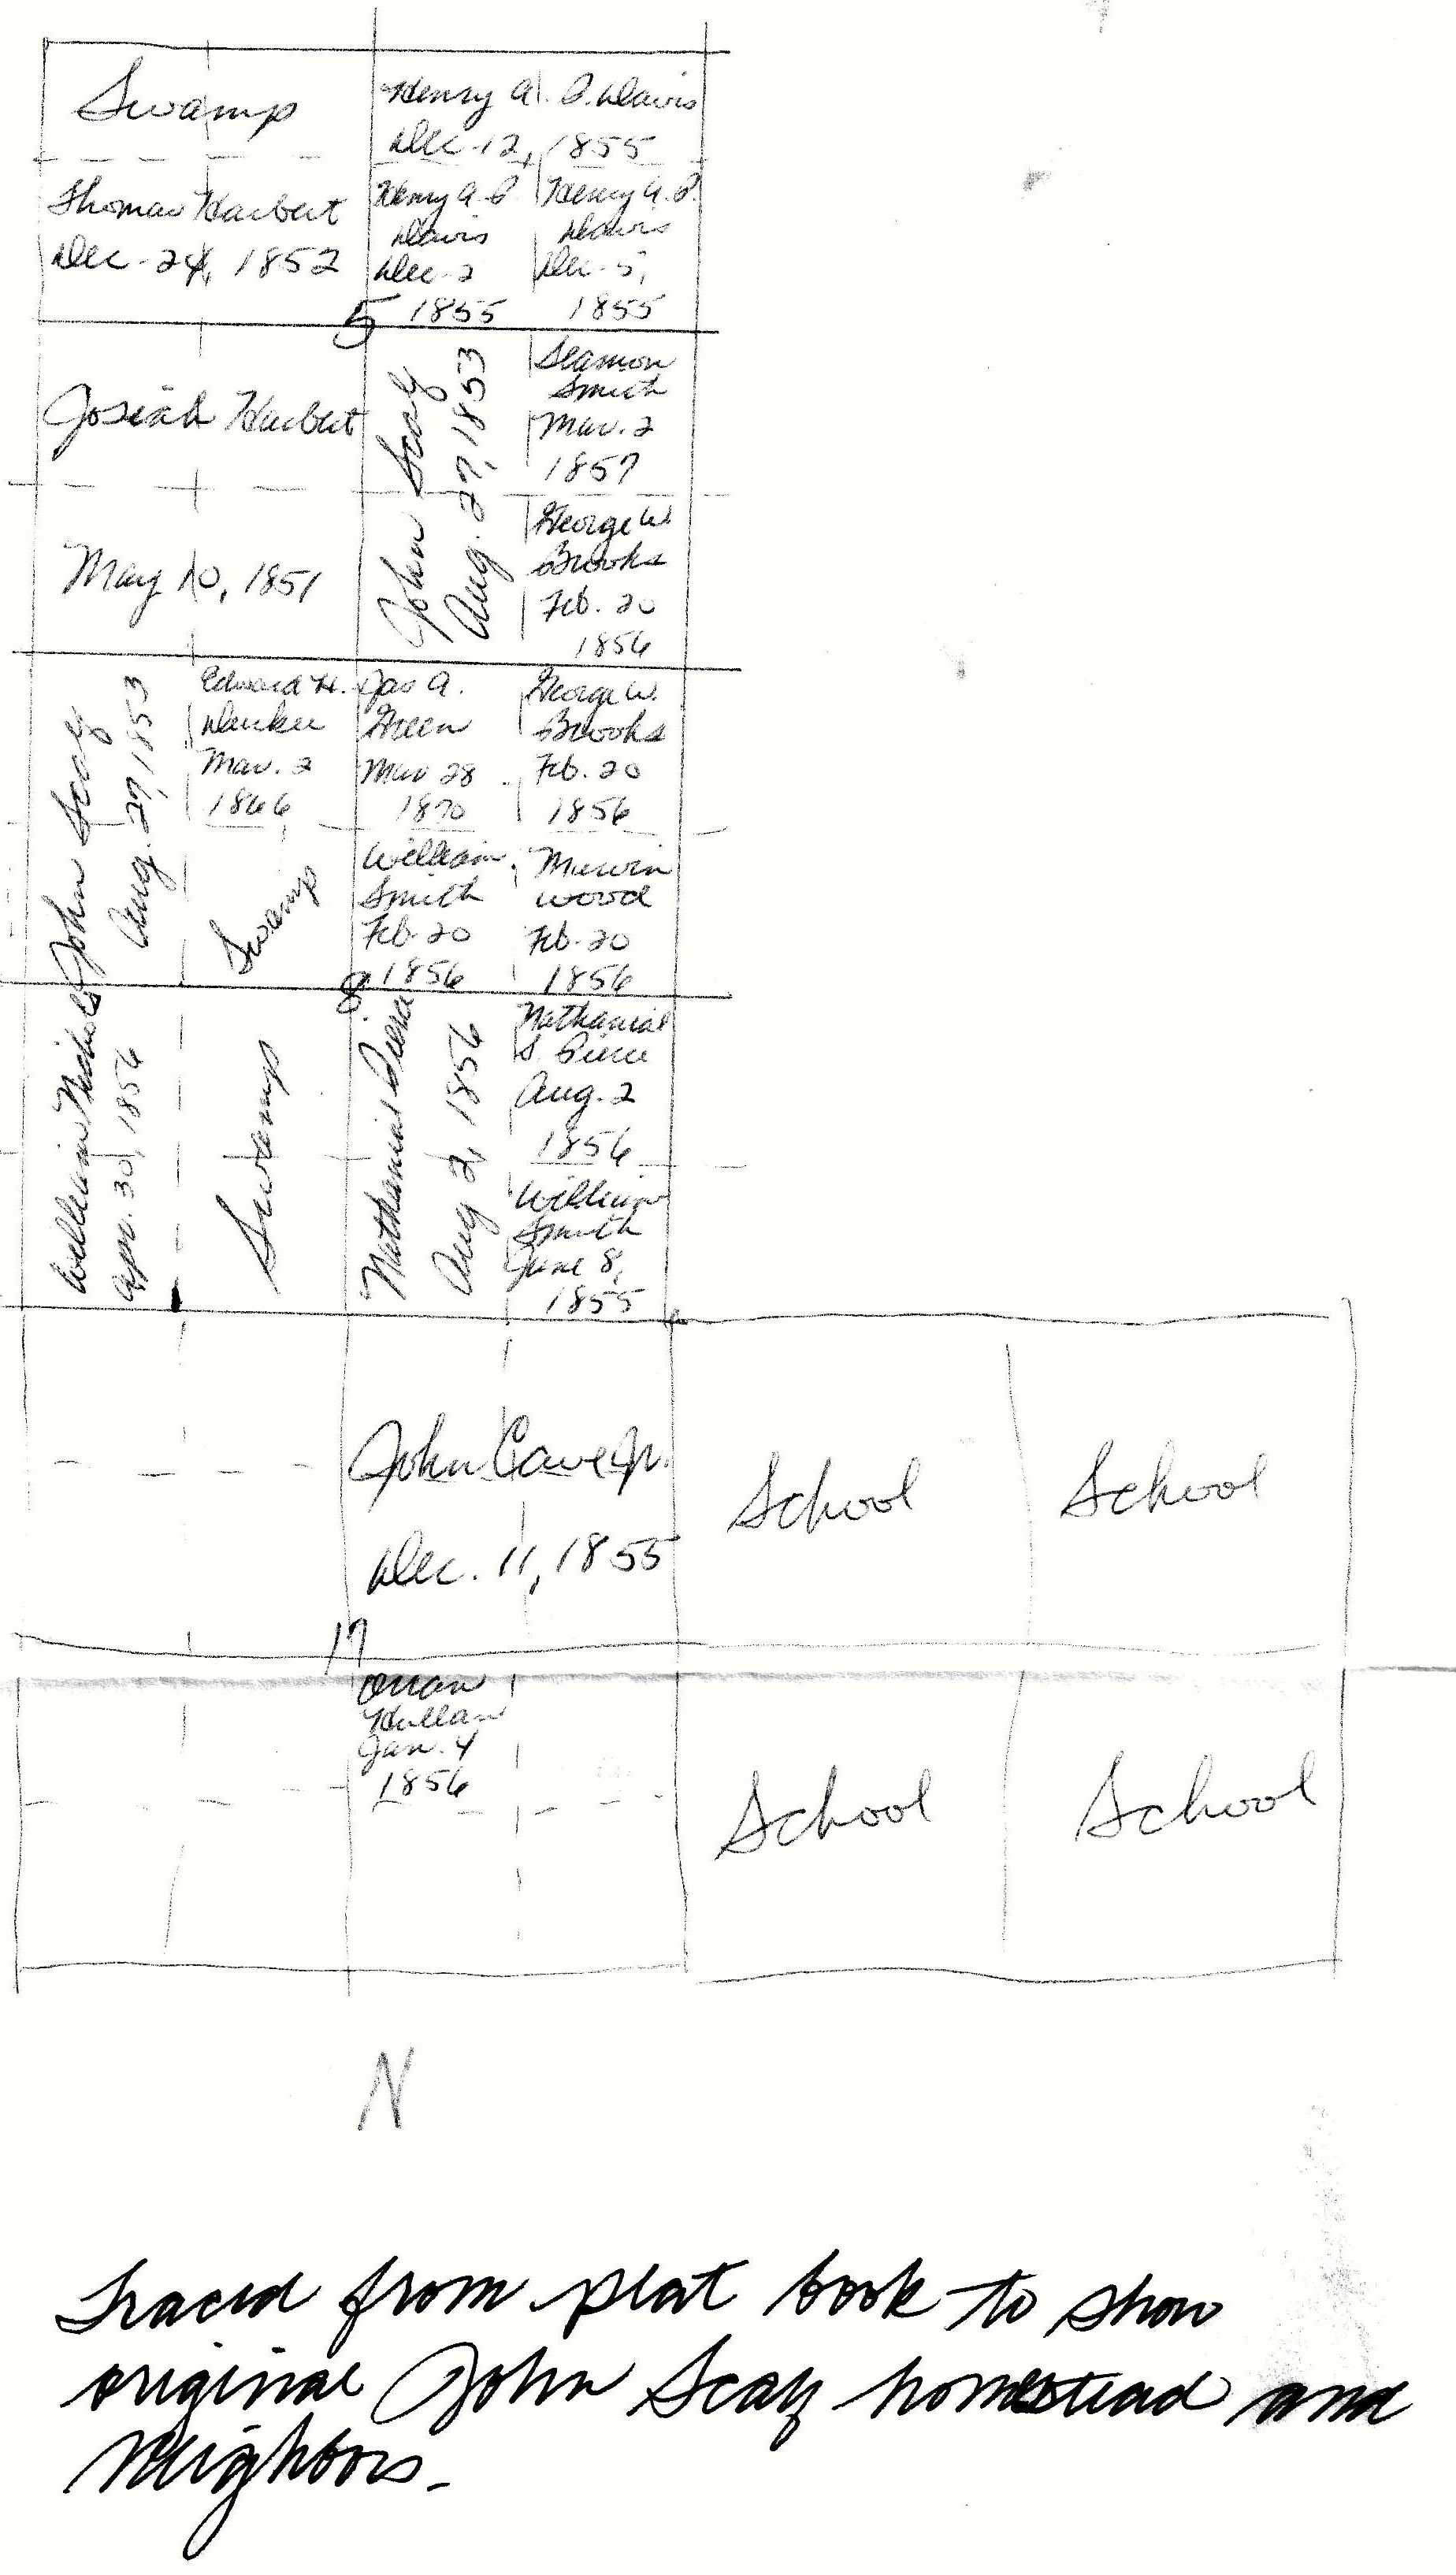 Swamp
Henry A. P. Davis
Dec. 12, 1855
Thomas Harbert
Dec. 24, 1852
Henry A. P.
Davis
Dec. 2
1855
Henry A. P.
Davis
Dec. 5,
1855
5
Josiah Harbert
May 10, 1851
John Scaly
Aug. 27, 1853
Seamon
Smith
Mar. 2
1857
George W.
Brooks
Feb. 20
1856
John Scaly
Aug. 27, 1853
Edward H.
Mar. 2
1866
Jas A.
Green
Mar 28
1870
George W.
Brooks
Feb. 20
1856
Swamp
William
Smith
Feb. 20
1856
Wood
Feb. 20
1856
8
William Nichols
Apr. 30, 1856
Swamp
Nathanial Pierce
Aug 2, 1856
Nathanial
S. Pierce
Aug. 2
1856
William
Smith
June 8,
1855
John Cave Jr.
Dec. 11, 1855
School
School
17
Orran
Jan. 4
1856
School
School
N
Traced from plat book to show
original John Scaly homestead and
Neighbors.